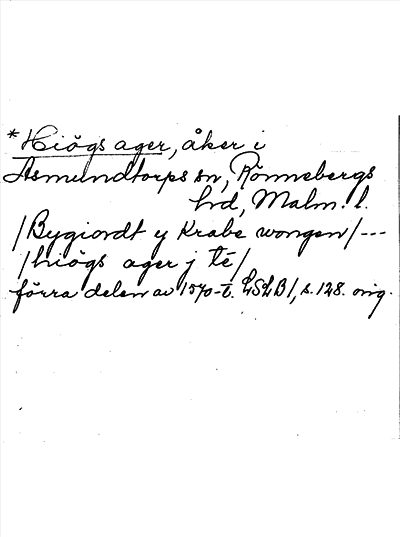 *Hiögs ager, åker i
Asmundtorps sn, Rönnebergs
hd, Malm. l.
/Bygiordt y Krabe wongen/---
/hiögs ager j té/
förra delen av 1570-t. LSLB1, s. 128. orig.